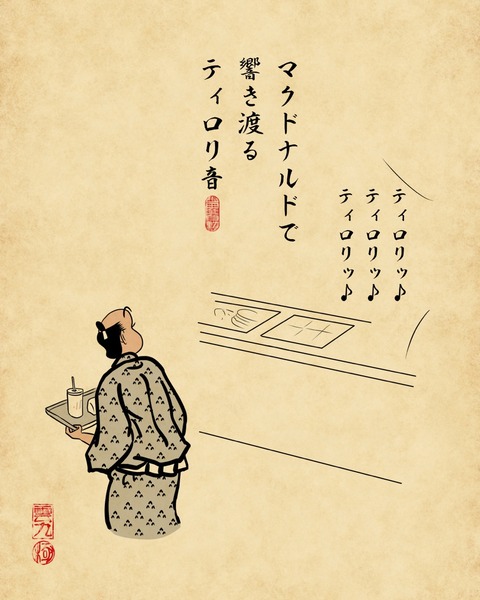 マクドナルドで
響き渡る
ティロリ音
ティロリッ♪
ティロリッ♪
ティロリッ♪